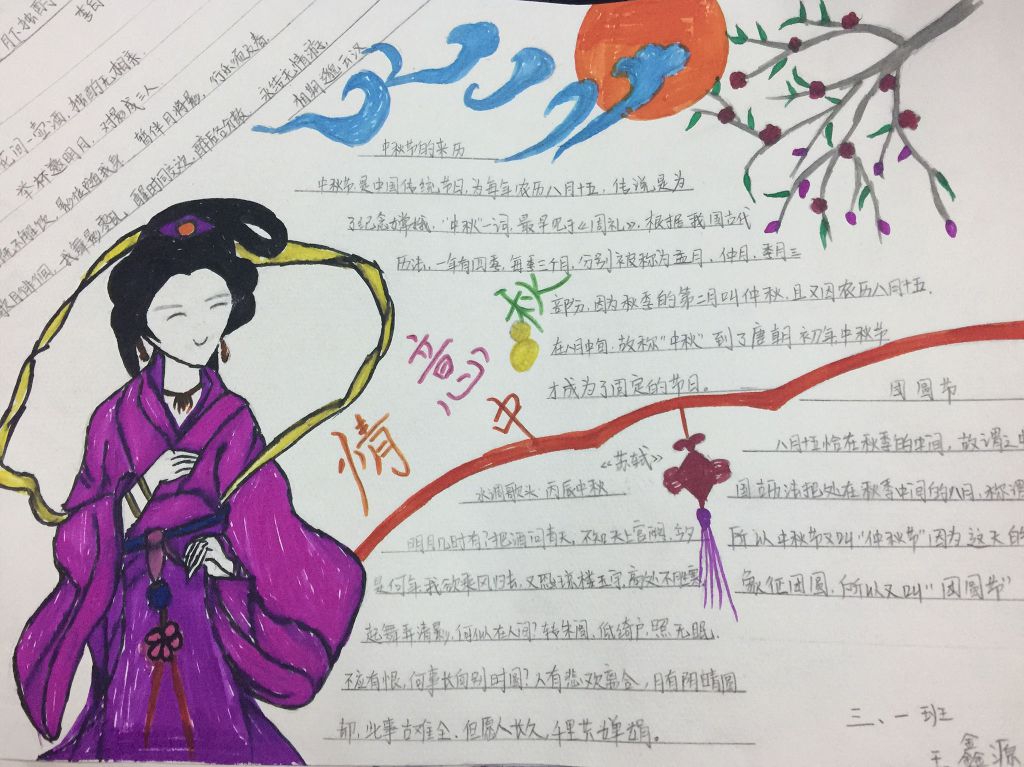 月下独酌
李白
花间一壶酒，独酌无相亲
举杯邀明月，对影成三人
既不解饮，影徒随我身，暂伴月将影，行乐须及春
我舞影零乱，醒时同交欢，醉后各分散，永结无情游
相期邈云汉
中秋节的来历
中秋节是中国传统节日，为每年农历八月十五，传说是为
了纪念嫦娥，“中秋”一词，最早见于《周礼》，根据我国古代
历法，一年有四季，每季三个月，分别被称为孟月，仲月，季月三
部分，因为秋季的第二月叫仲秋，且又因农历八月十五，
在八月中旬，故称“中秋”到了唐朝初年中秋节
才成为了固定的节日。
情意中秋
团圆节
八月十五恰在秋季的中间，故谓之中
国古历法把处在秋季中间的八月，称谓
所以中秋节又叫“仲秋节”因为这天的
象征团圆，所以又叫“团圆节”
《苏轼》
水调歌头 丙辰中秋
明月几时有？把酒问青天，不知天上宫阙，今夕
是何年，我欲乘风归去，又恐琼楼玉宇，高处不胜寒
起舞弄清影，何似在人间？转朱阁，低绮户，照无眠
不应有恨，何事长向别时圆？人有悲欢离合，月有阴晴圆
却，此事古难全，但愿人长久，千里共婵娟。
三、一班
王鑫源